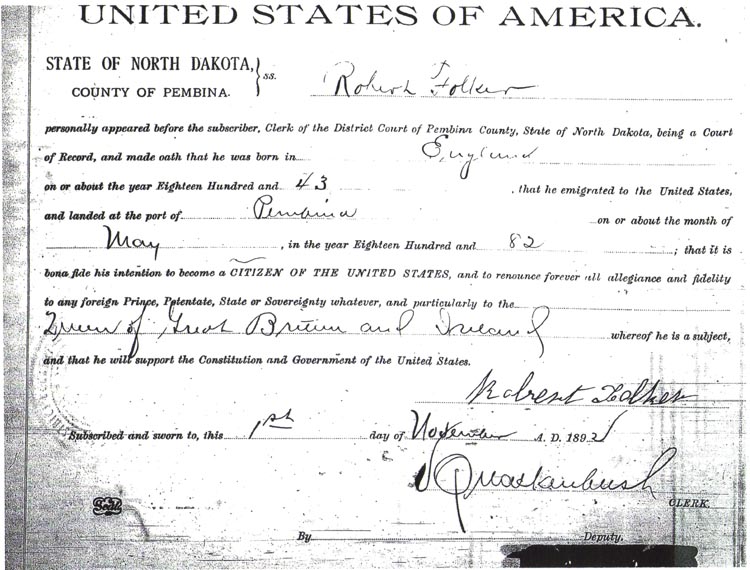 UNITED STATES OF AMERICA.
STATE OF NORTH DAKOTA, } ss. Robert Folker
COUNTY OF PEMBINA.
personally appeared before the subscriber, Clerk of the District Court of Pembina County, State of North Dakota, being a Court
of Record, and made oath that he was born in England
on or about the year Eighteen Hundred and 43 , that he emigrated to the United States,
and landed at the port of Pembina on or about the month of
May , in the year Eighteen Hundred and 82 ; that it is
bona fide his intention to become a CITIZEN OF THE UNITED STATES, and to renounce forever all allegiance and fidelity
to any foreign Prince, Potentate, State or Sovereignty whatever, and particularly to the
Queen of Great Britain and Ireland whereof he is a subject,
and that he will support the Constitution and Government of the United States.
Robert Folker
Subscribed and sworn to, this 1st day of November A. D. 1892
Quackenbush
CLERK.
Seal
By Deputy.